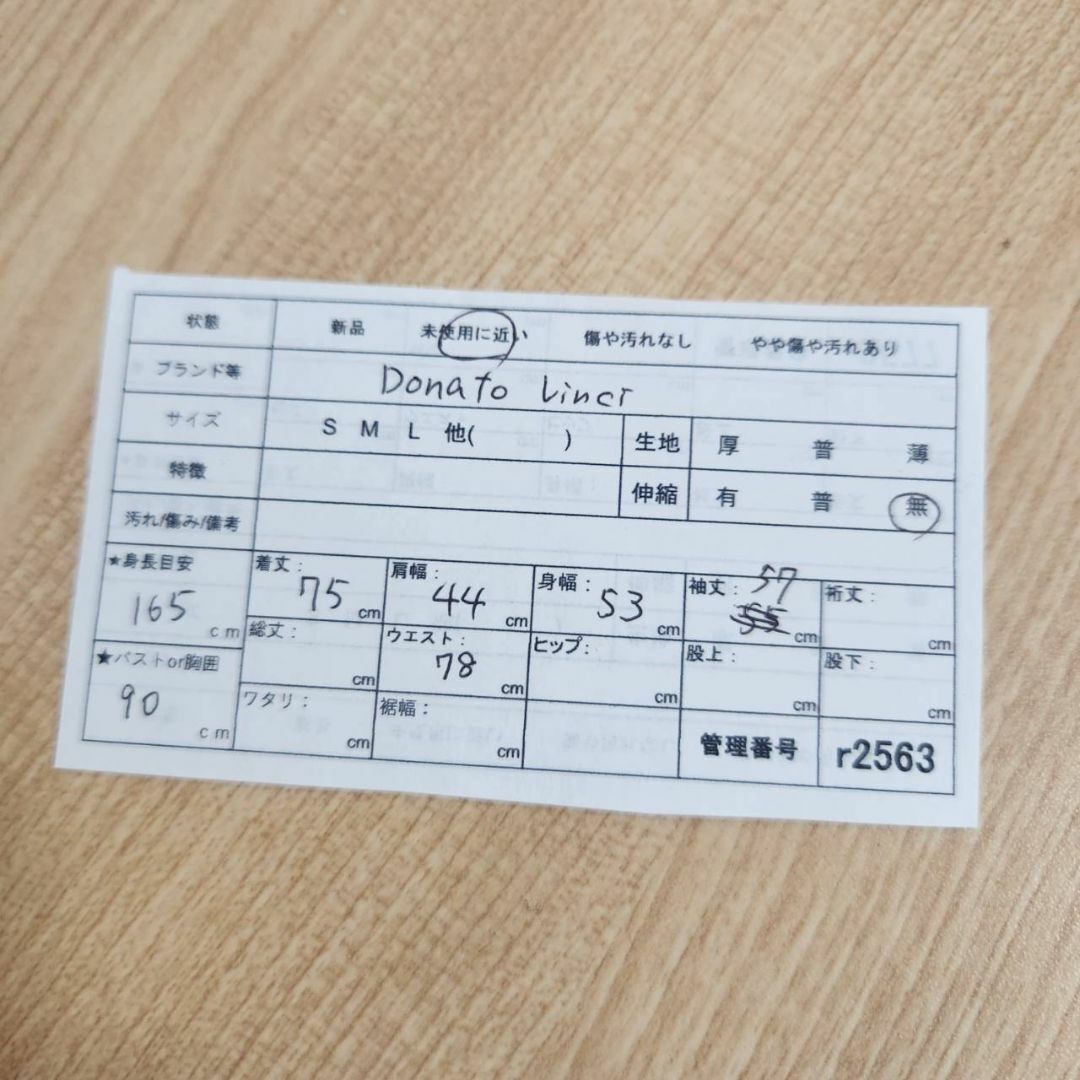 状態 新品 未使用に近い 傷や汚れなし やや傷や汚れあり
ブランド等 Donato Vinci
サイズ S M L 他( ) 生地 厚 普 薄
特徴 伸縮 有 普 無
汚れ/傷み/備考
★身長目安 着丈: 肩幅: 身幅: 袖丈: 57 裄丈:
165 cm 75 cm 44 cm 53 cm 55 cm cm
★バストor胸囲 総丈: ウエスト: ヒップ: 股上: 股下:
90 cm cm 78 cm cm cm cm
ワタリ: cm 裾幅: cm 管理番号 r2563